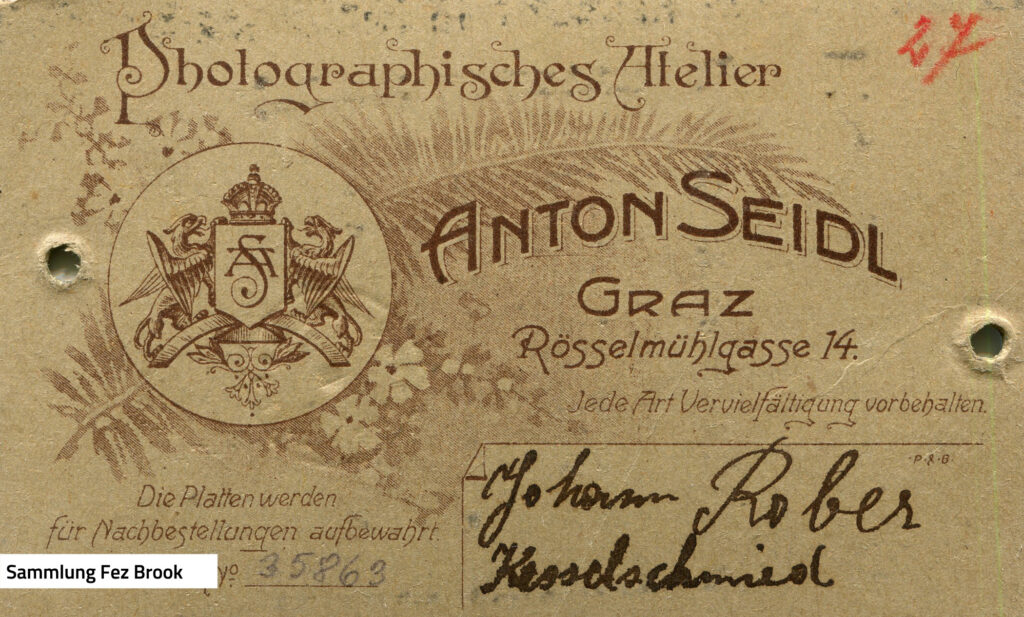 27
Photographisches Atelier
ANTON SEIDL
GRAZ
Rösselmühlgasse 14.
Jede Art Vervielfältigung vorbehalten.
P. & B.
Johann Rober
Kesselschmied
Die Platten werden
für Nachbestellungen aufbewahrt.
No 35863
Sammlung Fez Brook